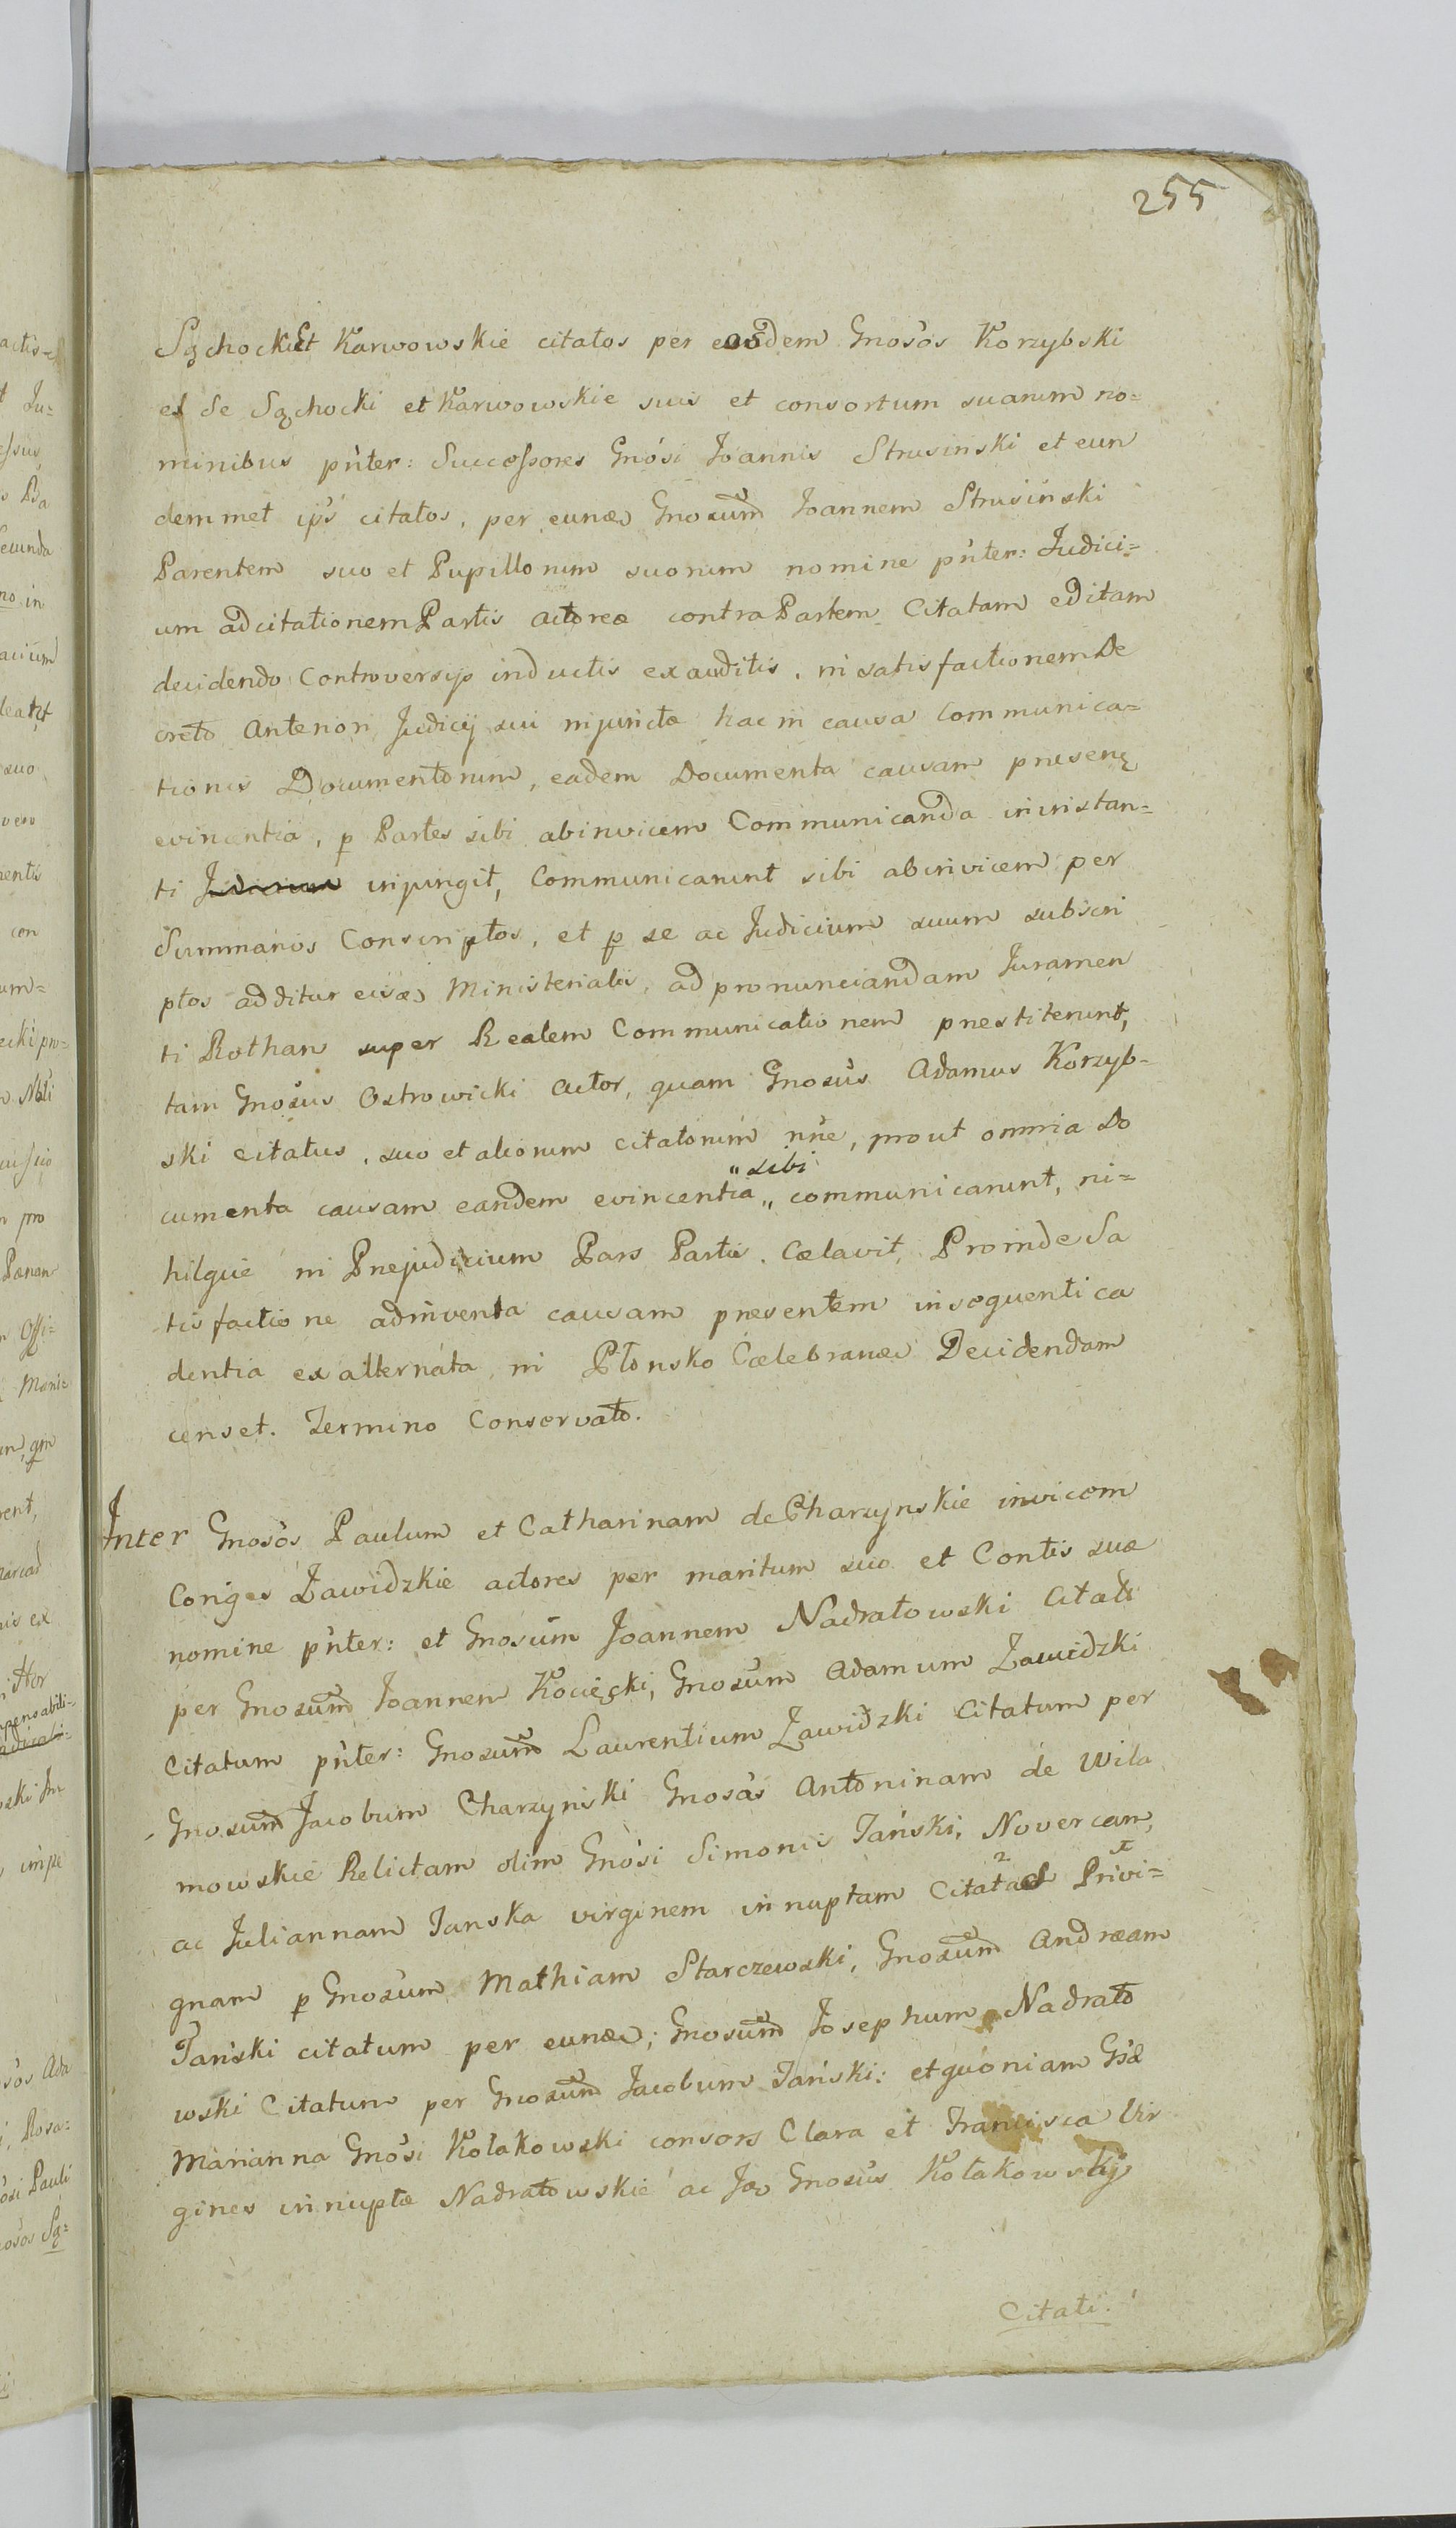 255
Sąchockiet Karwowskie citatos per eosdem Gnosos Korzybski
et de Sąchocki et Karwowskie suis et consortum suarum no=
minibus pnter: Successores Gnosi Joannis Strusinski et eun
demmet ips citatos, per eunde Gnosum Joannem Strusinski
Parentem suo et Pupillorum suorum nomine pnter: Judici=
um adcitationem Partis actoreæ contra Partem Citatam editam
decidendo Controversijs inductis exauditis, in satisfactionem De
creto Anteriori Judicij sui injunctæ hac in causa Communica=
tionis Documentorum, eadem Documenta causam præsenę
evincentia, p Partes sibi abinvicem Communicanda in instan=
ti injungit, Communicarunt sibi abinvicem per
Summarios Conscriptos, et p se ac Judicium suum subscri
ptos additur eisde Ministerialis, ad pronunciandam Juramen
ti Rotham super Realem Communicationem præstiterunt,
tam Gnosus Ostrowicki Actor, quam Gnosus Adamus Korzyb=
ski citatus, suo et aliorum citatorum nne, prout omnia Do
cumenta causam eandem evincentia „ communicarunt, ni=
"sibi
hilque in Præjudicium Pars Partis Cælavit, Proinde Sa
tisfactione adinventa causam præsentem in sequenti ca
dentia ex alternata in Płonsko Cælebranæ Decidendam
censet. Termino Conservato.
Inter Gnosos Paulum et Catharinam de Charzynskie invicem
Coniges Zawidzkie actores per maritum suo et Contis suæ
nomine pnter: et Gnosum Joannem Nadratowski Citati
per Gnosum Joannem Kocięcki, Gnosum Adamum Zawidzki
Citatum pnter: Gnosum Laurentium Zawidzki Citatum per
Gnosum Jacobum Charzynski Gnosas Antoninam de Wila
mowskie Relictam olim Gnosi Simonis Tański, Novercam,
ac Juliannam Tanska virginem innuptam Citatas Privi=
gnam p Gnosum Mathiam Starczewski, Gnosum Andræam
Tański citatum per eunde; Gnosum Josephum Nadrato
wski Citatum per Gnosum Jacobum Tański: et quoniam Gsæ
Marianna Gnosi Kołakowski consors Clara et Francisca Vir
gines innuptæ Nadratowskie ac Gnosus Kołakowskij
Citati.